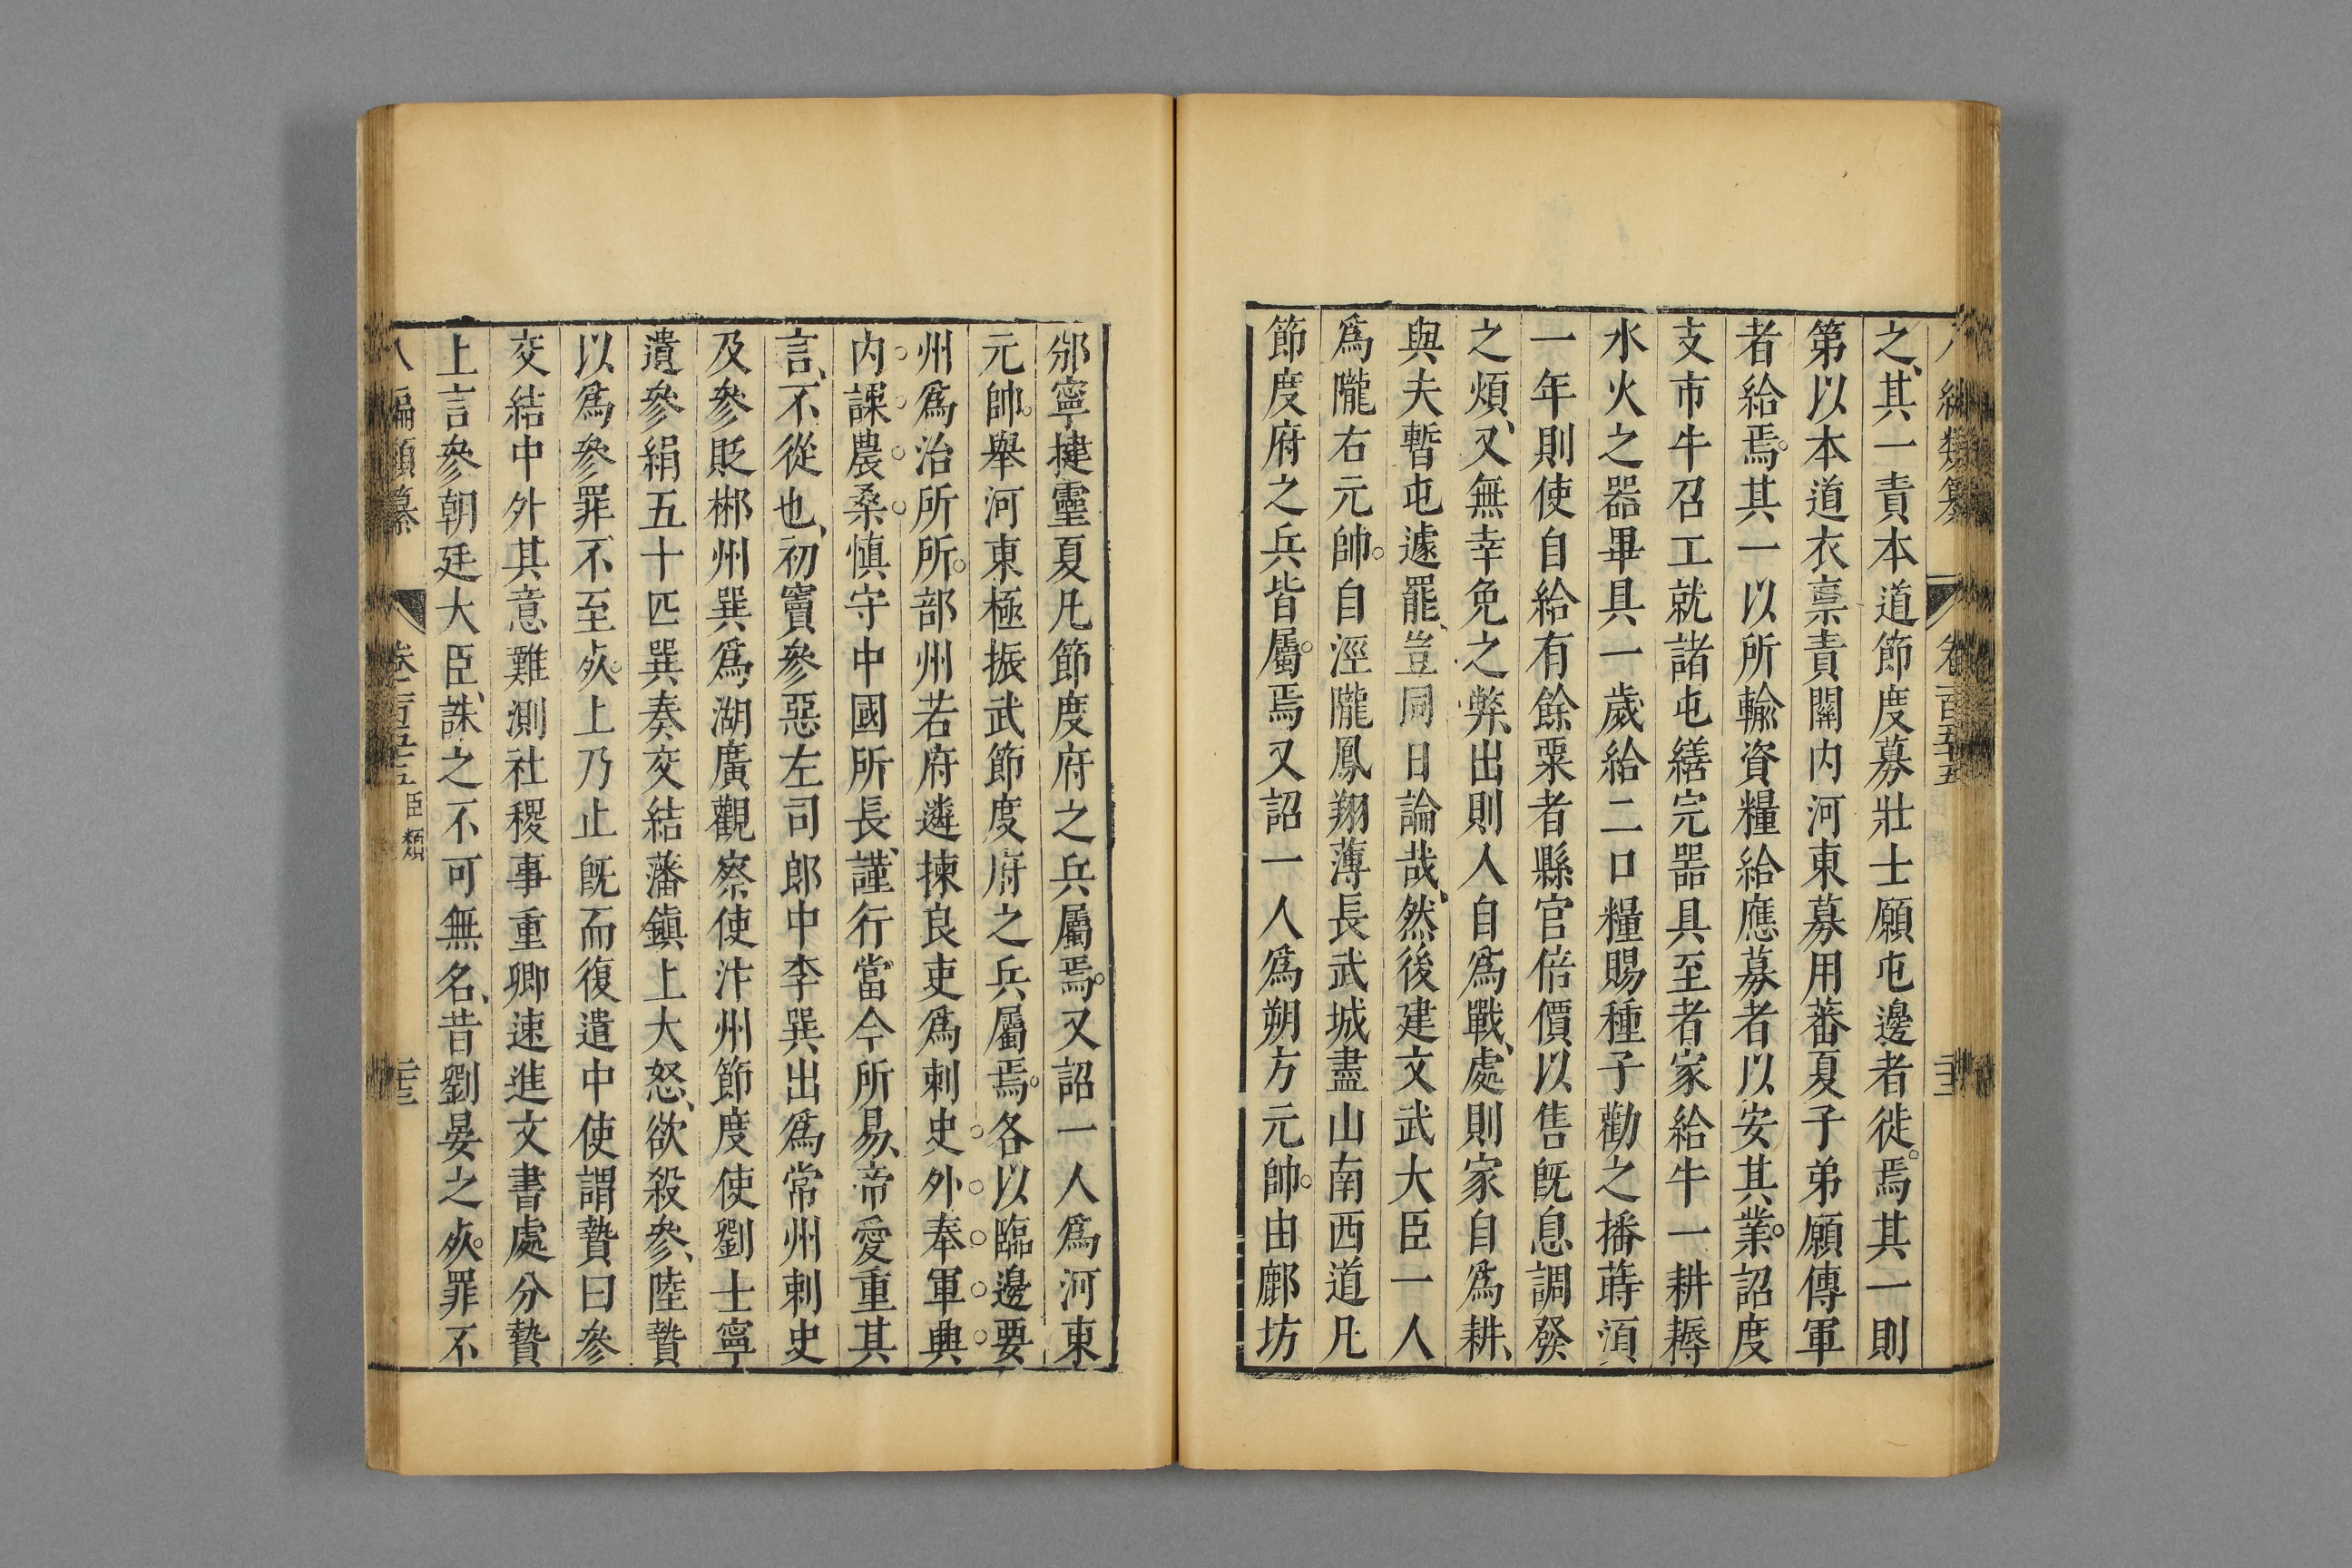 編類纂 卷一百五十五
之其一責本道節度募壯士願屯邊者徙焉其一則
第以本道衣稟責關内河東募用蕃夏子弟願傳軍
者給焉其一以所輸資糧給應募者以安其業詔度
支市牛召工就諸屯繕完噐具至者家給牛一耕耨
水火之器畢具一歲給二口糧賜種子勸之播蒔湏
一年則使自給有餘粟者縣官倍價以售旣息調發
之煩又無幸免之弊出則人自爲戰處則家自爲耕
與夫暫屯遽罷豈同日論哉然後建文武大臣一人
爲隴右元帥自涇隴鳳翔薄長武城盡山南西道凡
節度府之兵皆屬焉又詔一人爲朔方元帥由鄜坊
邠寧揵靈夏凡節度府之兵屬焉又詔一人爲河東
元帥舉河東極振武節度府之兵屬焉各以臨邊要
州爲治所所部州若府遴揀良吏爲刺史外奉軍興
内課農桑慎守中國所長謹行當今所易帝愛重其
言不從也初竇參惡左司郎中李巽出爲常州刺史
及參貶郴州巽爲湖廣觀察使汴州節度使劉士寧
遺參絹五十匹巽奏交結藩鎭上大怒欲殺參陸贄
以爲參罪不至死上乃止旣而復遣中使謂贄曰參
交結中外其意難測社稷事重卿速進文書處分贄
上言參朝廷大臣誅之不可無名昔劉晏之死罪不
八編類纂 卷一百五十五 臣類